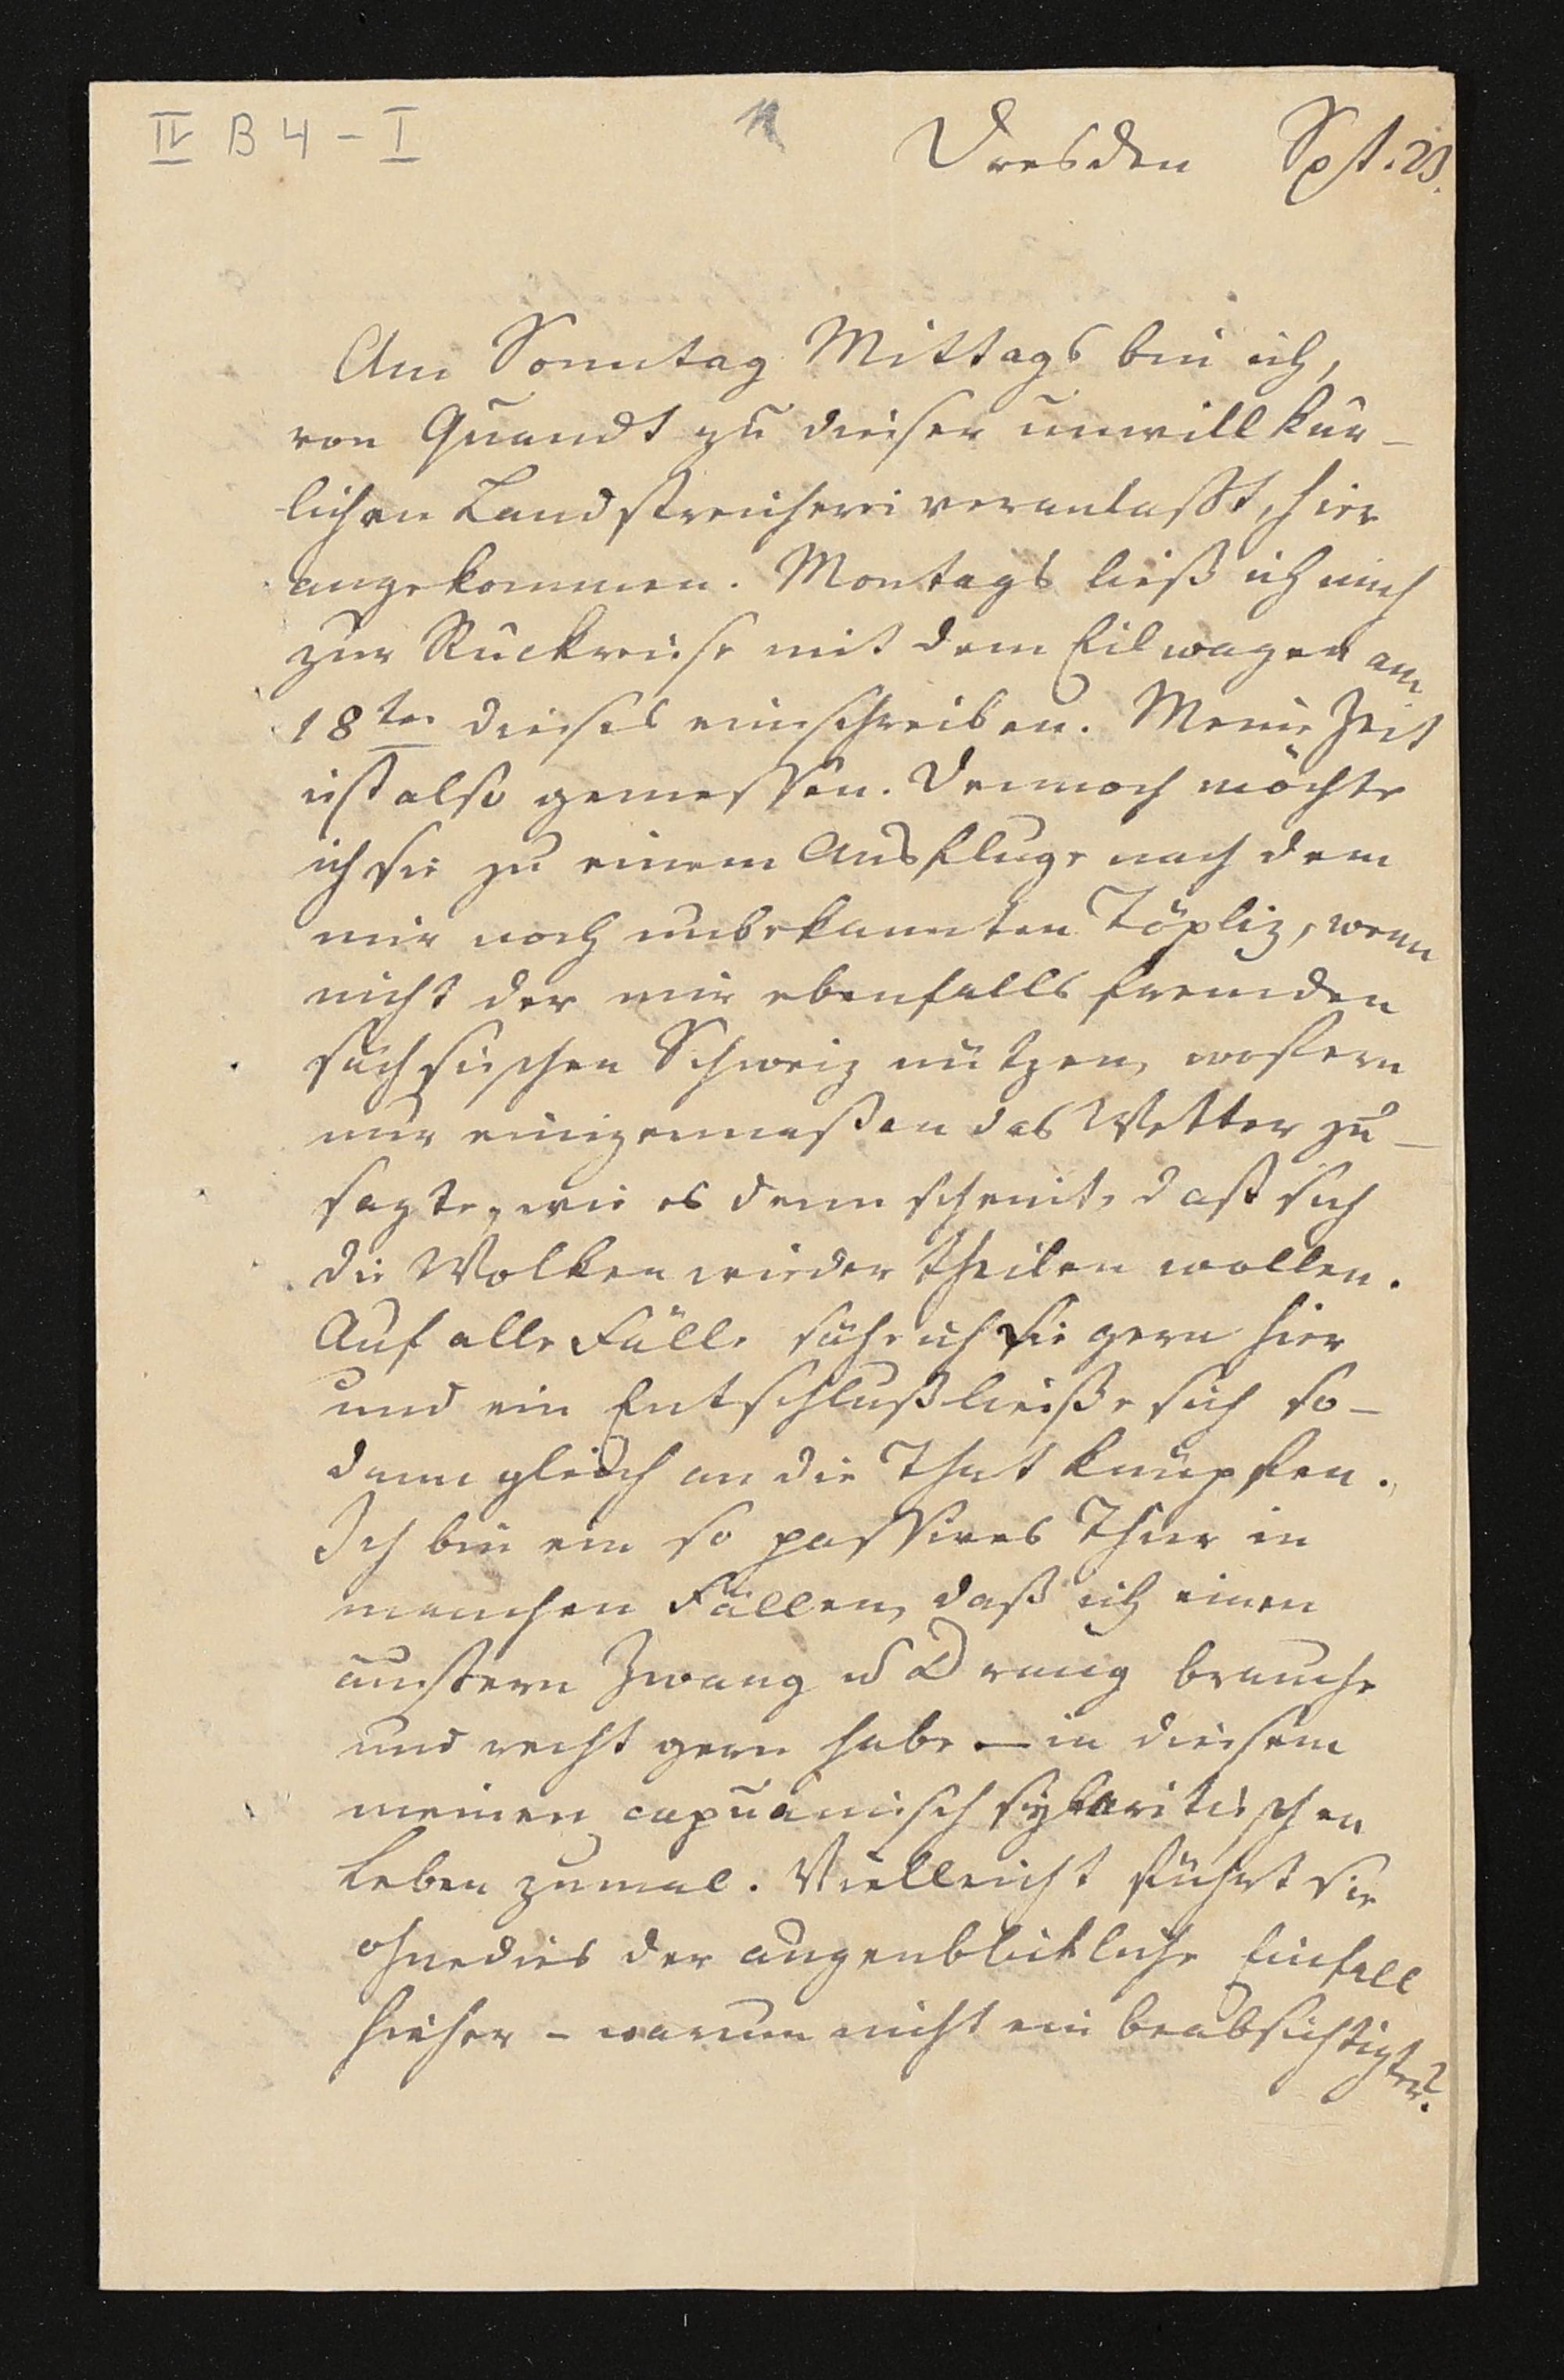 IV B 4 - I
Dresden Spt. 23.
Am Sonntag Mittags bin ich,
von Quandt zu dieser unwillkür-
lichen Landstreicherei veranlaßt, hier
angekommen. Montags ließ ich mich
zur Rückreise mit dem Eilwagen am
18ten dieses einschreiben. Meine Zeit
ist also gemessen. Dennoch möchte
ich sie zu einem Ausfluge nach dem
mir noch unbekannten Töpliz, wenn
nicht der mir ebenfalls fremden
sächsischen Schweiz nützen, wofern
nur einigermaßen das Wetter zu-
sagte, wie es denn scheint, daß sich
die Wolken wieder theilen wollen.
Auf alle Fälle sähe ich Sie gern hier
und ein Entschluß ließe sich so-
dann gleich an die That knüpfen.
Ich bin ein so passives Thier in
manchen Fällen, daß ich einen
äußern Zwang u Drang brauche
und recht gern habe — in diesem
meinen capuanisch sybaritischen
Leben zumal. Vielleicht führt Sie
ohnedies der augenblickliche Einfall
hieher - warum nicht ein beabsichtigter?